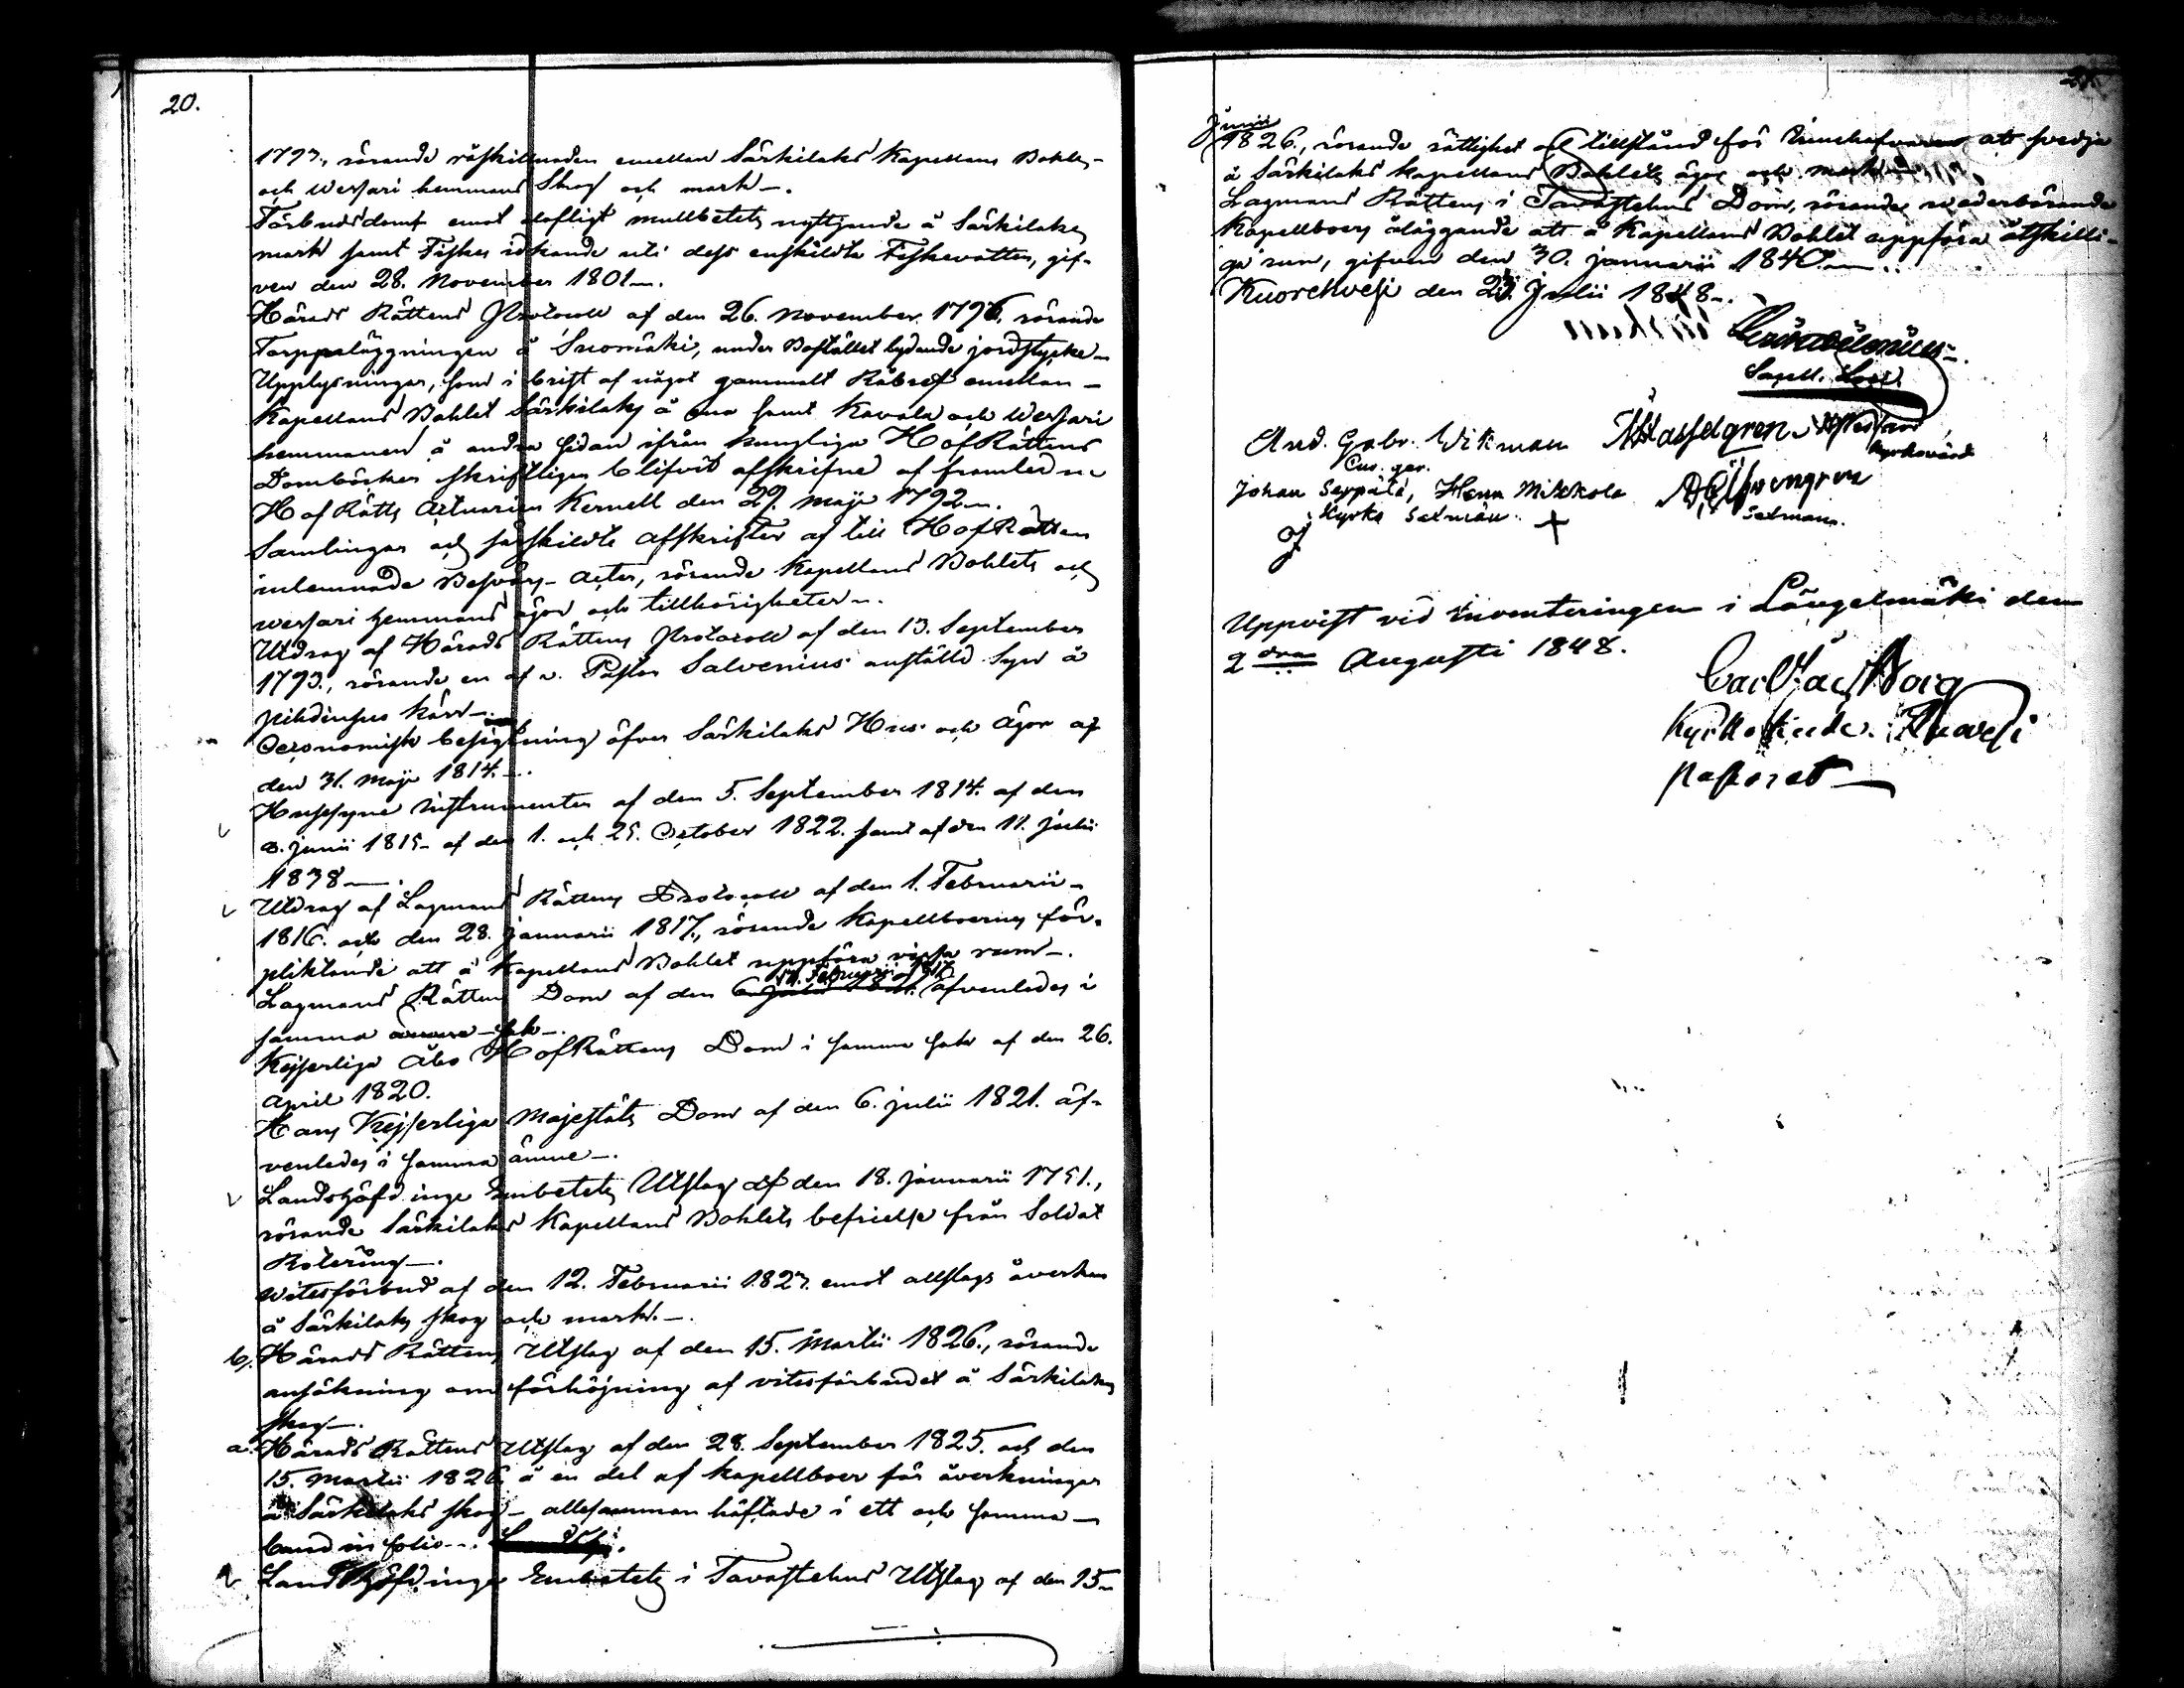 20.
1793., rörande råskillnaden emellan Särkilaks Kapellans Bohls-
och Wessari hemmans Skog och mark-.
Förbudsdomf emot olofligt mullbetets nyttjande å Särkilaks
mark samt Fiskes idkande uti dess enskildta Fiskevatten, gif-
ven den 28. November 1801-.
Härads Rättens Protocoll af den 26. November 1796, rörande
Torppaläggningen å Suomäki, under Bostället lydande jordstycke-
Upplysningar, som i brist af något gammalt Råbref emellan-
Kapellans Bohlet Särkilaks å ena samt Kavala och Wessari
hemmanen å andra sidan ifrån kungliga HofRättens
Domböcker skriftligen blifvit afskrifne af framledne
HofRätts Actuarien Kernell den 29. Maji 1792-.
Samlingar och särskildte afskrifter af till HofRätten
inlemnade Besvärs-Acter, rörande Kapellans Bohlets och
Wessari hemmans ägor och tillhörigheter-.
Utdrag af Härads Rättens Protocoll af den 13. September
1793., rörande en af v. Pastor Salvenius anställd Syn å
kärr-.
Oeconomisk besigtning öfver Särkilaks Hus och Ägor af
den 31. Maji 1814.-.
Hussyne Instrumenter af den 5. September 1814. af den
8. Junii 1815- af den 1. och 25. October 1822. samt af den 11. Julii
1838-.
Utdrag af Lagmans Rättens Protocoll af den 1. Februarii-
1816. och den 28. Januarii 1817., rörande Kapellboernes för-
pliktande att å Kapellans Bohlet uppföra vissa rum-.
17. Februarii 1817.
Lagmans Rättens Dom af den äfvenledes i
samma sak-.
Kejserliga Åbo HofRättens Dom i samma sak af den 26.
April 1820.
Hans Kejserliga Majestäts Dom af den 6. Julii 1821. äf-
venledes i samma ämne-.
Landshöfdinge Embetets Utslag af den 18. Januarii 1751.,
rörande Särkilaks Kapellans Bohlets befrielse från Soldat
Rotering-.
Witesförbud af den 12. Februarii 1823. emot allslags åverkan
å Särkilaks skog och mark.-.
b. Härads Rättens Utslag af den 15. Martii 1826., rörande
ansökning om förhöjning af vitesförbudet å Särkilaks
skog-.
a. Härads Rättens Utslag af den 28. September 1825. och den
15. Martii 1826 å en del af kapellboer för åverkningar
å Särkilaks skog- allesamman häftade i ett och samma-
band in folio-.
Landshöfdinge Embetets i Tavastehus Utslag af den 15-
21.
Junii
1826., rörande rättighet och tillstånd för att svedja
å Särkilaks kapellans Bohlets ägor och mark-
Lagmans Rättens i Tavastehus Dom, rörande vederbörande
Kapellboers åläggande att å Kapellans Bohlet uppföra åtskilli-
ga rum, gifven den 30. Januarii 1840-.
Kuorehvesi den 23. Julii 1848-.
Capell.
And. Gabr. Wikman Hasselgren
Kyrkovärd
Johan Seppälä, Henr Mikkola
Kyrko Sexmän. Sexman.
Uppvist vid inventeringen i Längelmäki den
2dra Augusti 1848.
Carl Jac Borg
Kyrkoherde.